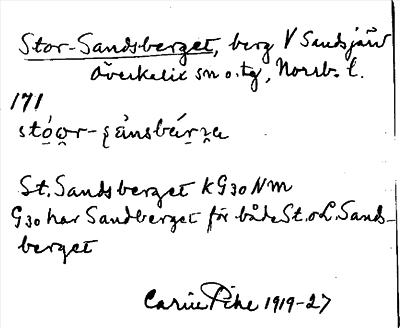 Stor-Sandsberget, berg V Sandsjärv
Överkalix sn o. tg, Norrb. l.
171
St. Sandsberget KG30NM
G30 har Sandberget för både St. o L. Sands-
berget
Carin Pihe 1919-27